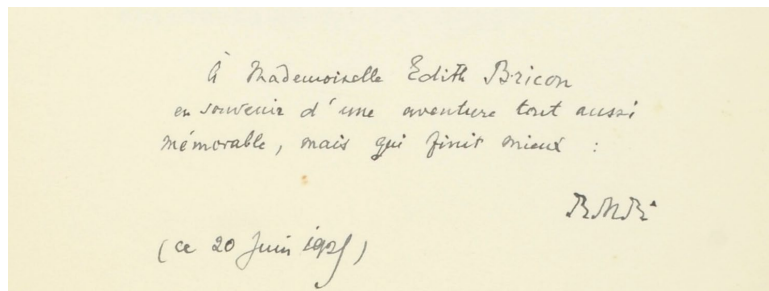 À Mademoiselle Edith Bricon
en souvenir d'une aventure tout aussi
mémorable, mais qui finit mieux :
(ce 20 Juin